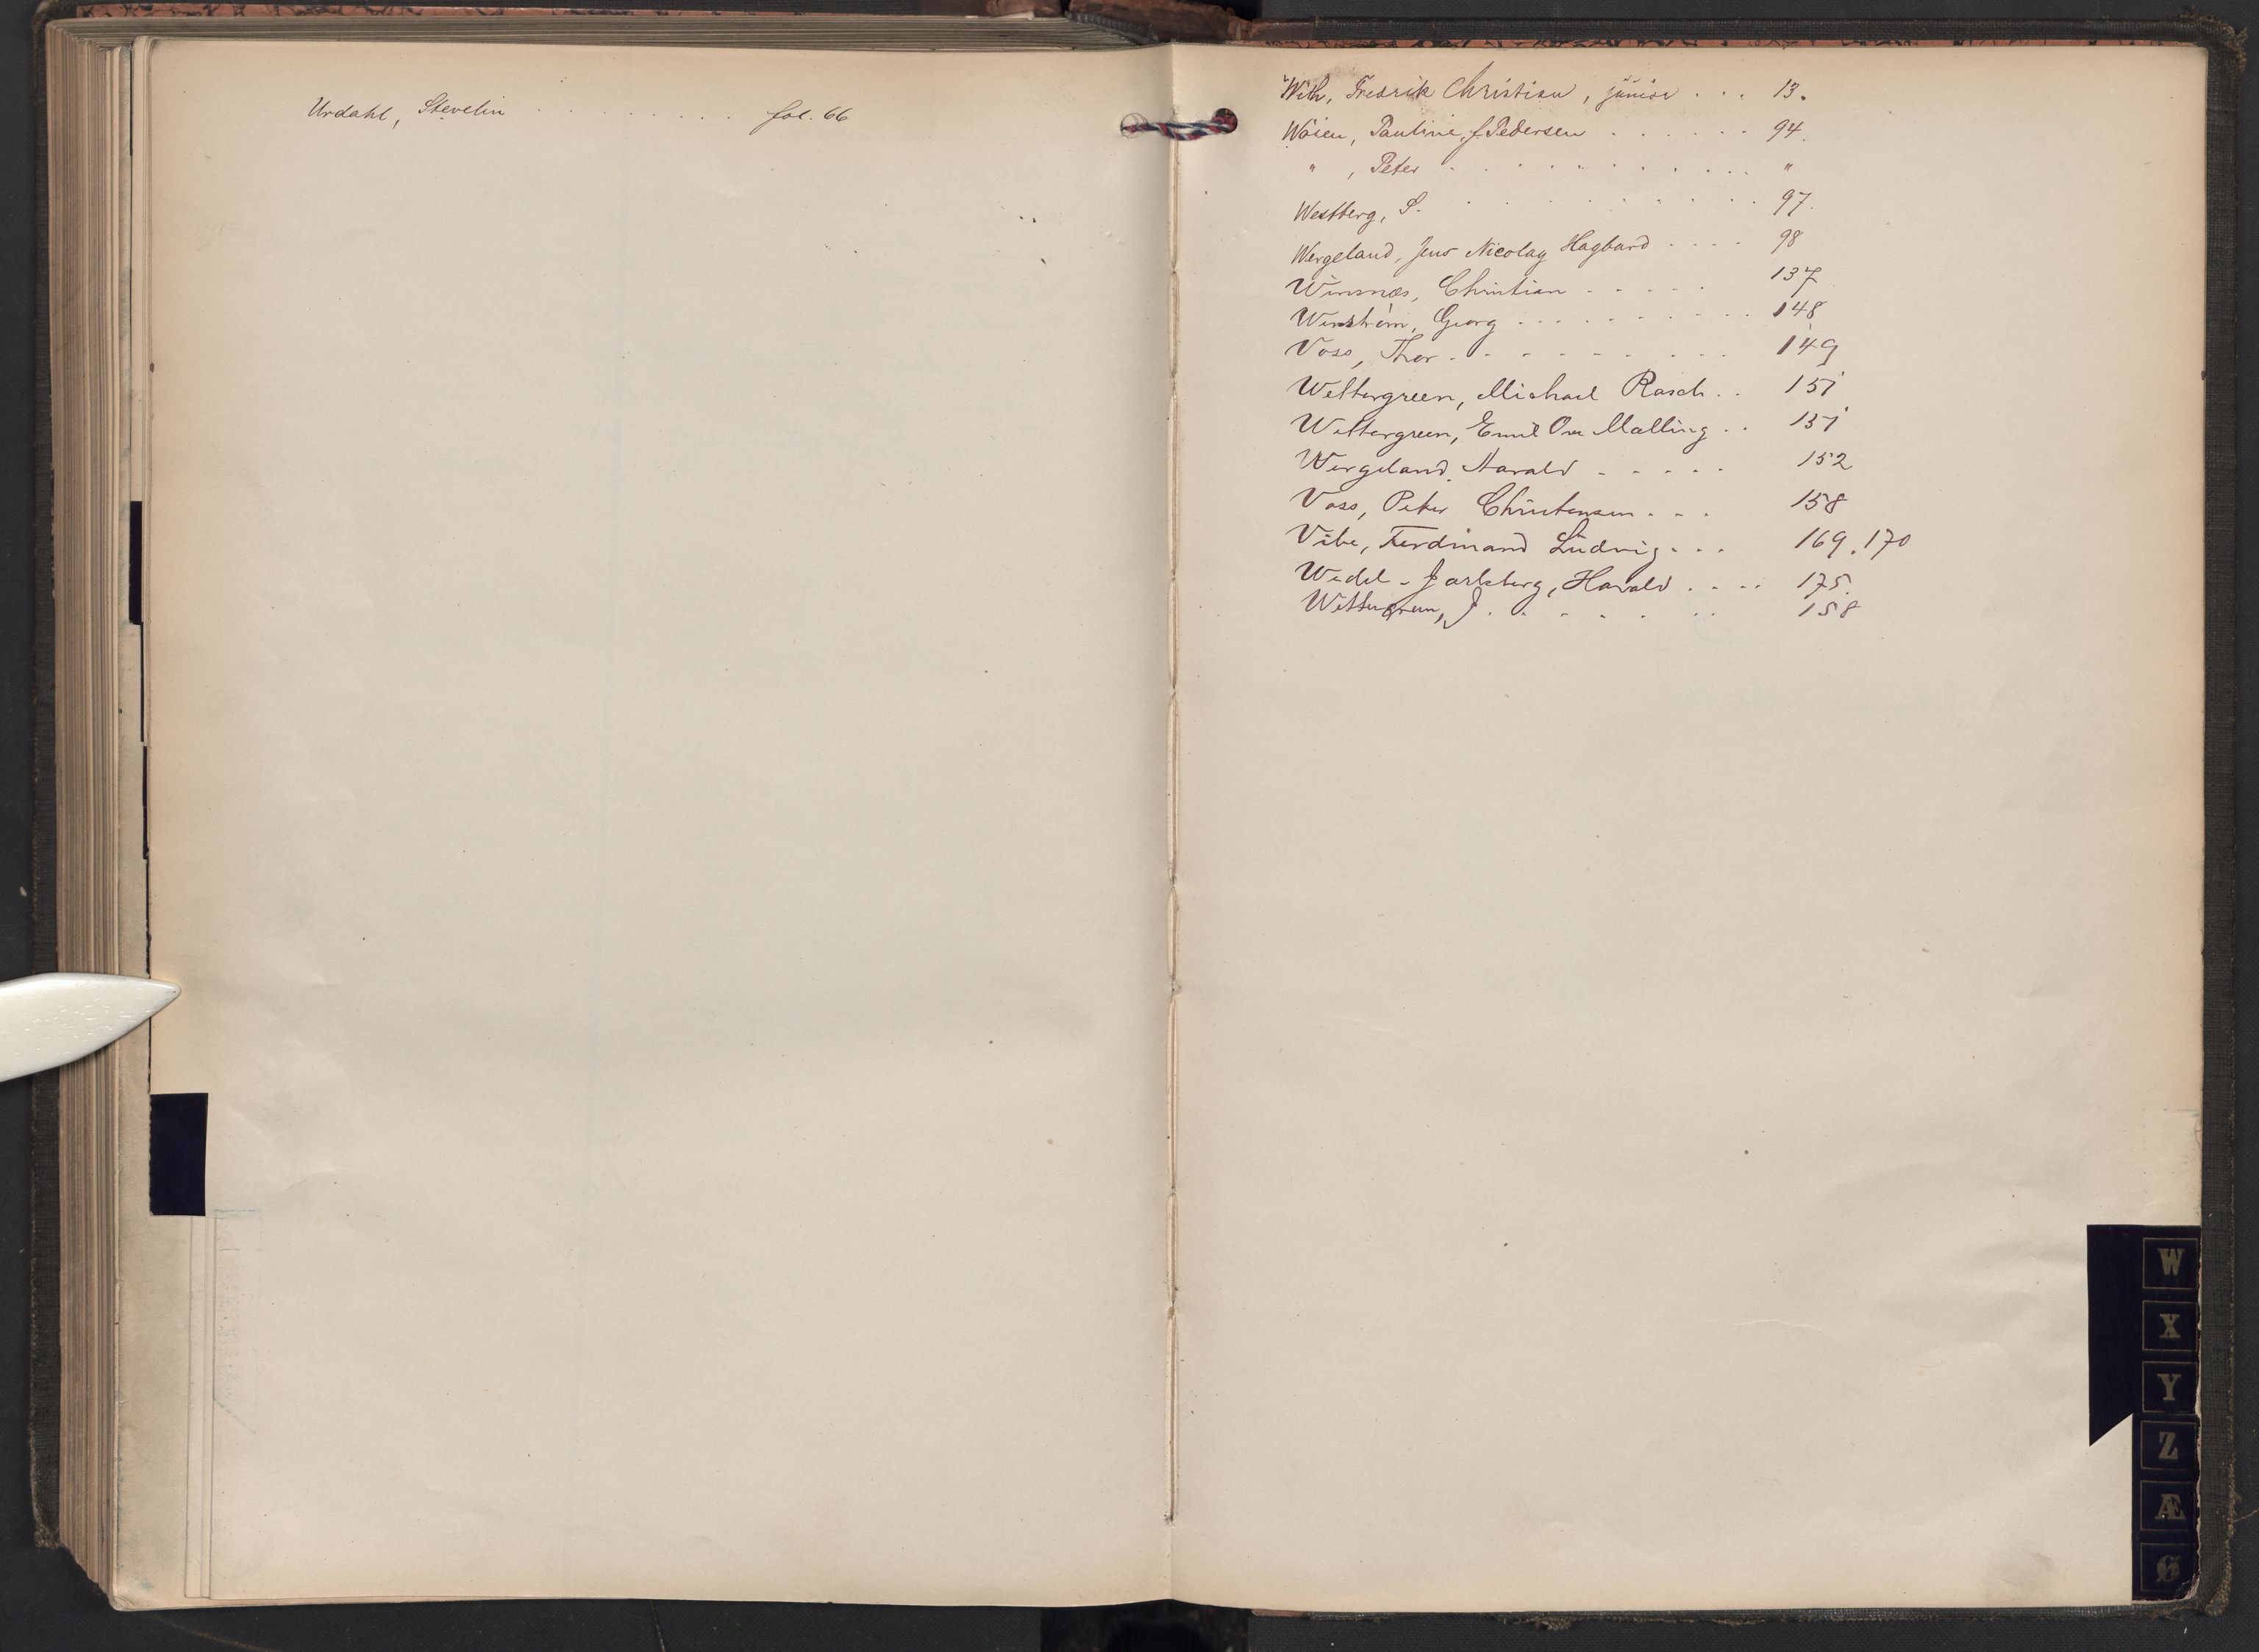 Urdahl, Stevelin . . . . . . . . fol. 66
With, Fredrik Christian, junior . . . 13.
Wöien, Pauline, f. Pedersen . . . . . . 94.
" , Peter . . . . . . . . . . "
Westberg, S. . . . . . . . . 97.
Wergeland, Jens Nicolay Hagbard . . . . 98
Winsnæs, Christian . . . . . 137
Winström, Georg . . . . . . . . . . 148
Voss, Thor . . . . . . . . . 149
Wettergreen, Michael Rasch . . 151
Wettergreen, Emil Ove Malling . . 151
Wergeland, Harald . . . . . 152
Voss, Peter Christensen . . . 158
Vibe, Ferdinand Ludvig . . . 169. 170
Wedel-Jarlsberg, Harald . . . . 175.
Wettergreen, J. . . . . . . . 158
W
X
Y
Z
Æ
Ø